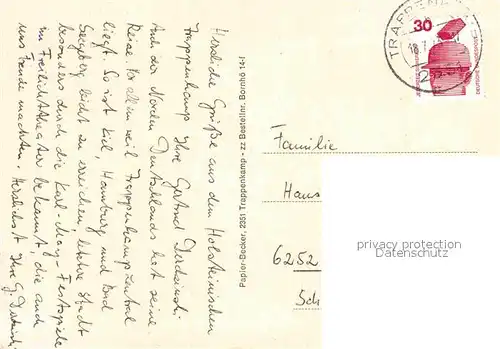 Herzliche Grüße aus dem Holsteinischen
Trappenkamp Ihre Gertrud
Auch der Norden Deutschlands hat seine
Reize. Vor allem weil Trappenkamp zentral
liegt. So ist Kiel, Hamburg und Bad
Segeberg leicht zu erreichen, letzte Stadt
besonders durch die Karl-May-Festspiele
im Freilichttheater bekannt, die auch
uns Freude machten. Herzlichst Ihre G.
Papier-Becker, 2351 Trappenkamp - zz Bestellnr. Borehid 141
TRAPPENKAMP
18.7.
30
Familie
Hans
6252
Sch
privacy protection
Datenschutz